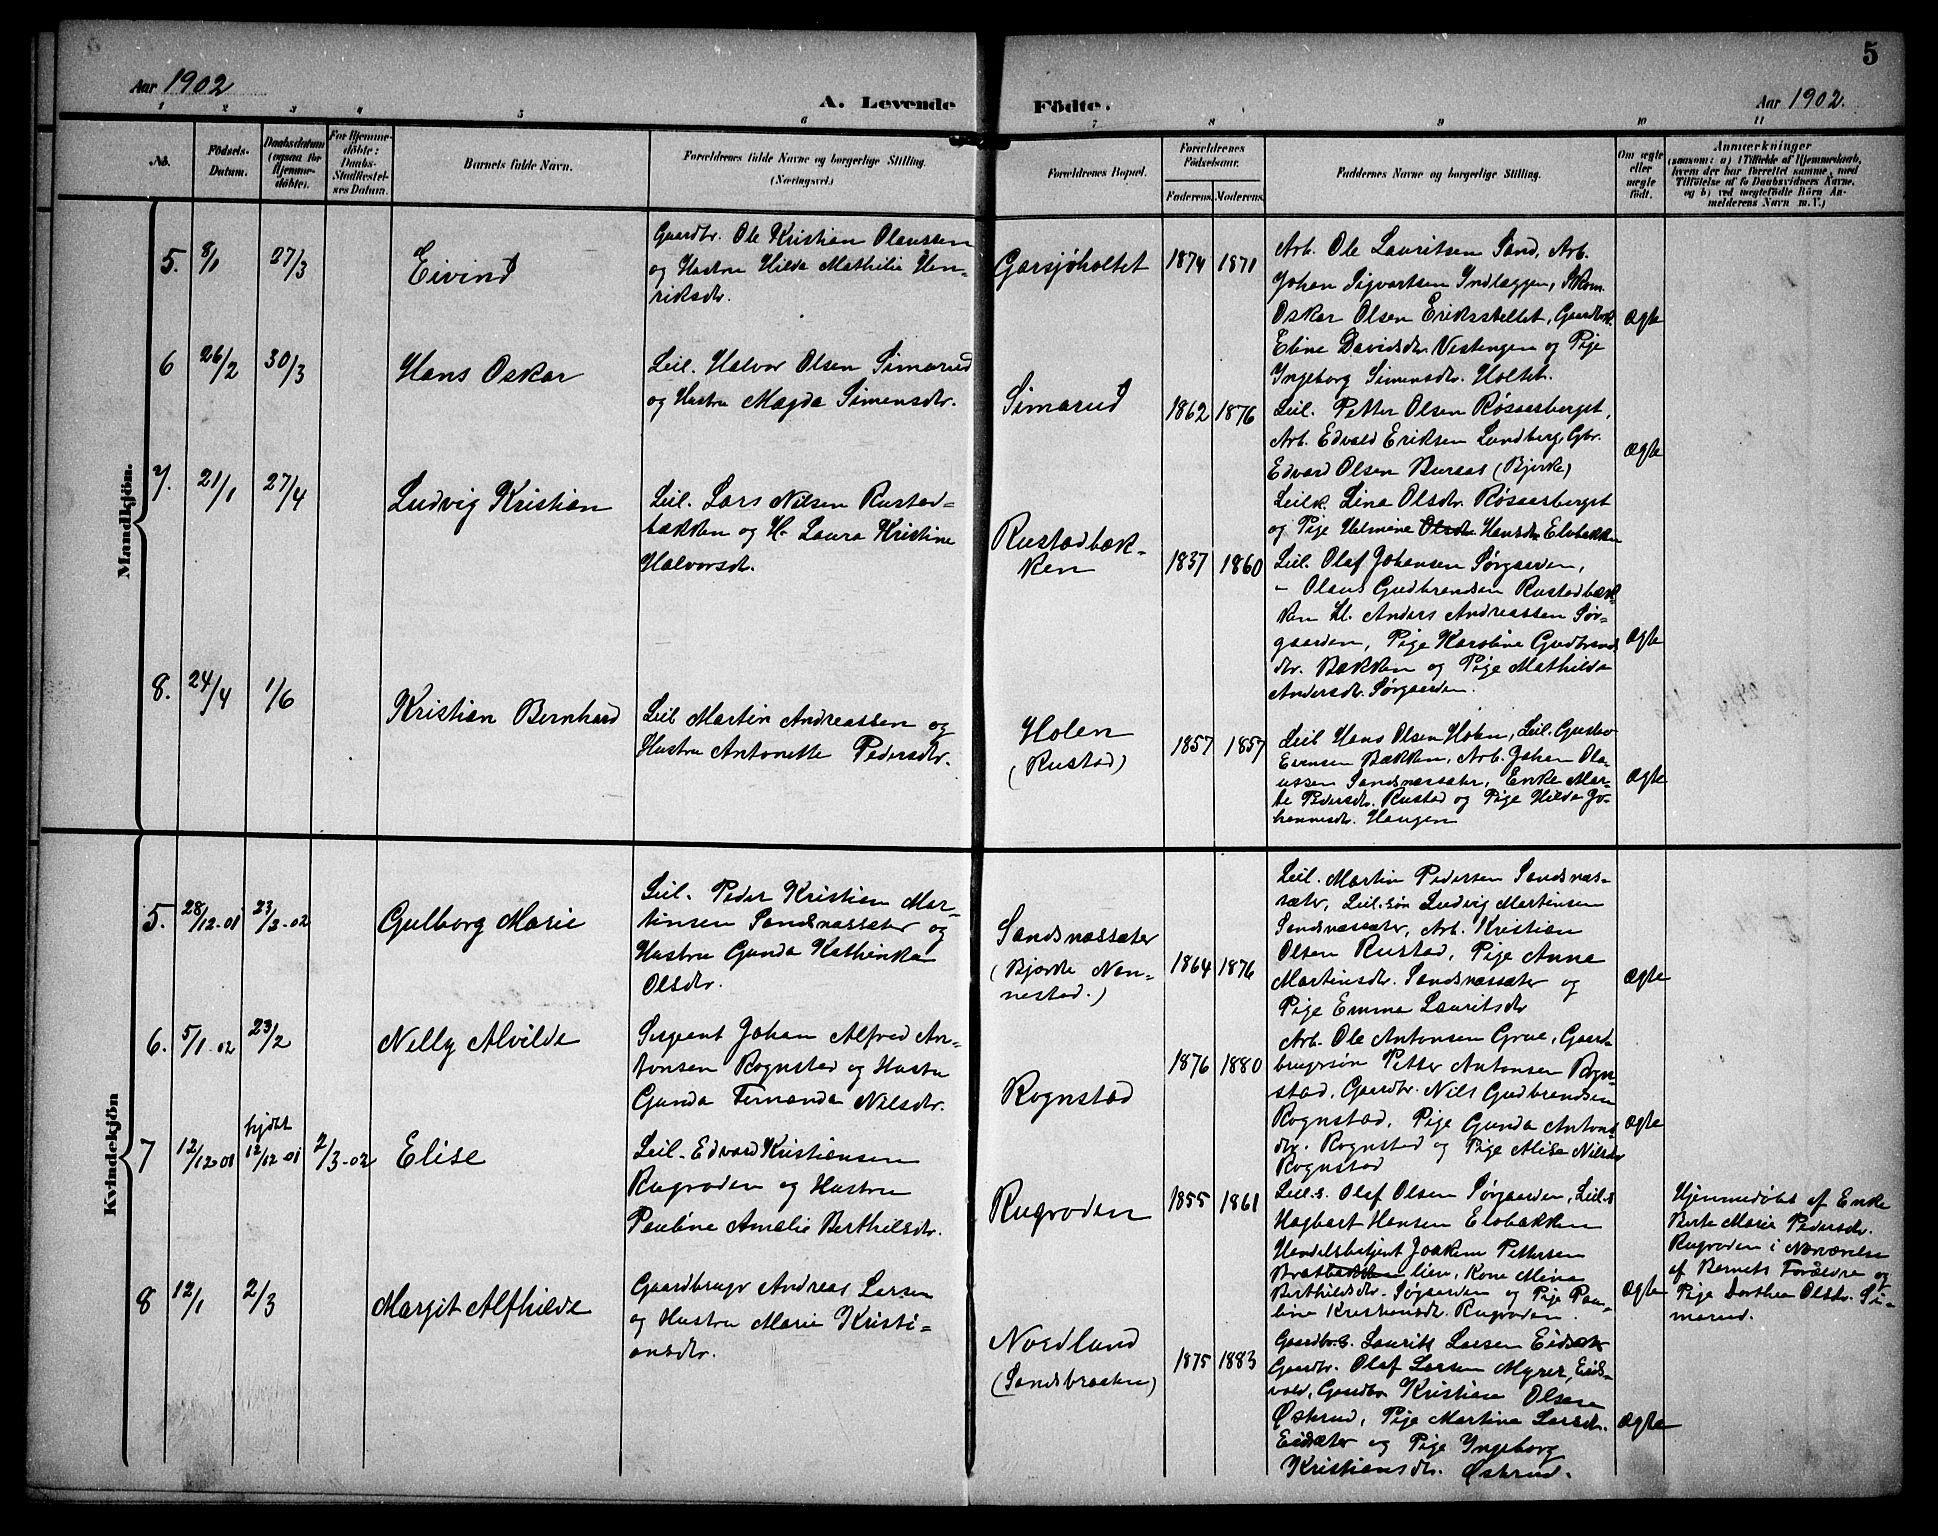 5
Aar 1902
A. Levende Födte.
Aar 1902.
1 2 3 4 5 6 7 8 9 10 11
No.
Födsels-
Datum.
Daabsdatum
(ogsaa for
Hjemme-
döbte).
For Hjemme-
döbte:
Daabs-
Stadfæstel-
ses Datum.
Barnets fulde Navn.
Forældrenes fulde Navne og borgerlige Stilling.
(Næringsvei.)
Forældrenes Bopæl.
Forældrenes
Födselsaar.
Faderens. Moderens.
Faddernes Navne og borgerlige Stilling.
Om ægte
eller
uægte
födt.
Anmærkninger
(saasom: a) i Tilfælde af Hjemmedaab,
hvem der har forrettet samme, med
Tilföielse af to Daabsvidners Navne,
og b) ved uægtefödte Börn An-
melderens Navn m. V.)
Mandkjön.
5. 8/1 27/3
Eivind
Gaardbr. Ole Kristian Olaussen
og Hustru Hilda Mathilie Hen-
riksdtr.
Garsjøholtet
1874 1871
Arb. Ole Lauritsen Sand, Arb.
Johan Sigvartsen Indlæggen, Skom.
Oskar Olsen Eriksstellet, Gaardbrk.
Eline Davidsdtr. Vestengen og Pige
Ingeborg Simensdtr. Holtet.
Ægte
6 26/2 30/3
Hans Oskar
Leil. Halvor Olsen Simarud
og Hustru Magda Simensdtr.
Simarud
1862 1876
Leil. Petter Olsen Røsaasberget,
Arb. Edvald Eriksen Lundberg, Gbr.
Edvard Olsen Buraas (Bjerke)
Leilk. Lina Olsdtr. Røsaasberget
og Pige Helmine Olsdtr Hansdtr Elvbakken
Ægte
7. 21/1 27/4
Ludvig Kristian
Leil. Lars Nilsen Rustad-
bækken og H. Laura Kristine
Halvorsdtr.
Rustadbæk-
ken
1837 1860
Leil. Olaf Johansen Sørgaarden,
- Olaus Gudbrandsen Rustadbæk-
ken Ll. Anders Andreassen Sør-
gaarden, Pige Karoline Gudbrands
dtr. Bækken og Pige Mathilde
Andersdtr. Sørgaarden.
Ægte
8. 24/4 1/6
Kristian Bernhard
Leil Martin Andreassen og
Hustru Antonette Pedersdtr.
Holen
(Rustad)
1857 1857
Leil Hans Olsen Holen, Leil. Gustav
Evensen Bækken, Arb. Johan Ola-
ussen Sandsnæssæter, Enke Mar-
te Pedersdtr. Rustad og Pige Hilda Jo-
hannesdtr. Haugen
Ægte
Kvindekjön
5. 28/12-01 23/2-02
Gulborg Marie
Leil. Peder Kristian Mar-
tinsen Sandsnæssæter og
Hustru Gunda Kathinka
Olsdtr.
Sandsnæssæter
(Bjerke Nan-
nestad.)
1864 1876
Leil. Martin Pedersen Sandsnæs-
sæter, Leil.søn Ludvig Martinsen
Sandsnæssæter, Arb. Kristian
Olsen Rustad, Pige Anna
Martinsdtr. Sandsnæssæter og
Pige Emma Lauritsdtr
Ægte
6. 5/1-02 23/2
Nelly Alvilde
Sergeant Johan Alfred An-
tonsen Rognstad og Hustru
Gunda Fernanda Nilsdtr.
Rognstad
1876 1880
Arb. Ole Antonsen Grue, Gaard-
brugersøn Petter Antonsen Rogn-
stad, Gaardbr. Nils Gudbrandsen
Rognstad, Pige Gunda Antons
dtr. Rognstad og Pige Alise Nilsdtr
Rognstad
Ægte
7 12/12-01 hjdbt 12/12-01 2/3-02
Elise
Leil. Edvard Kristiansen
Rugroden og Hustru
Pauline Amalie Berthilsdtr.
Rugroden
1855 1861
Leil.s. Olaf Olsen Sørgaarden, Leil.s
Hagbart Hansen Elvbakken
Handelsbetjent Joakim Pettersen
lien, Kone Mina
Berthilsdtr. Søgaarden og Pige Pau-
line Kristiansdtr. Rugroden.
Ægte
Hjemmedøbt af Enke
Berte Marie Pedersdtr.
Rugroden i Nærværelse
af Barnets Forældre og
Pige Dorthea Olsdtr. Si-
marud.
8 12/1 2/3
Margit Alfhilde
Gaardbruger Andreas Larsen
og Hustru Marie Kristi-
ansdtr.
Nordland
(Sandsbraaten)
1875 1883
Gaardbr.s. Laurits Larsen Eidsæter
Gaardbr. Olaf Larsen Myrer, Eids-
vold, Gaardbr Kristian Olsen
Østerud, Pige Martine Larsdtr.
Eidsæter og Pige Ingeborg
Kristiansdtr. Østerud.
Ægte